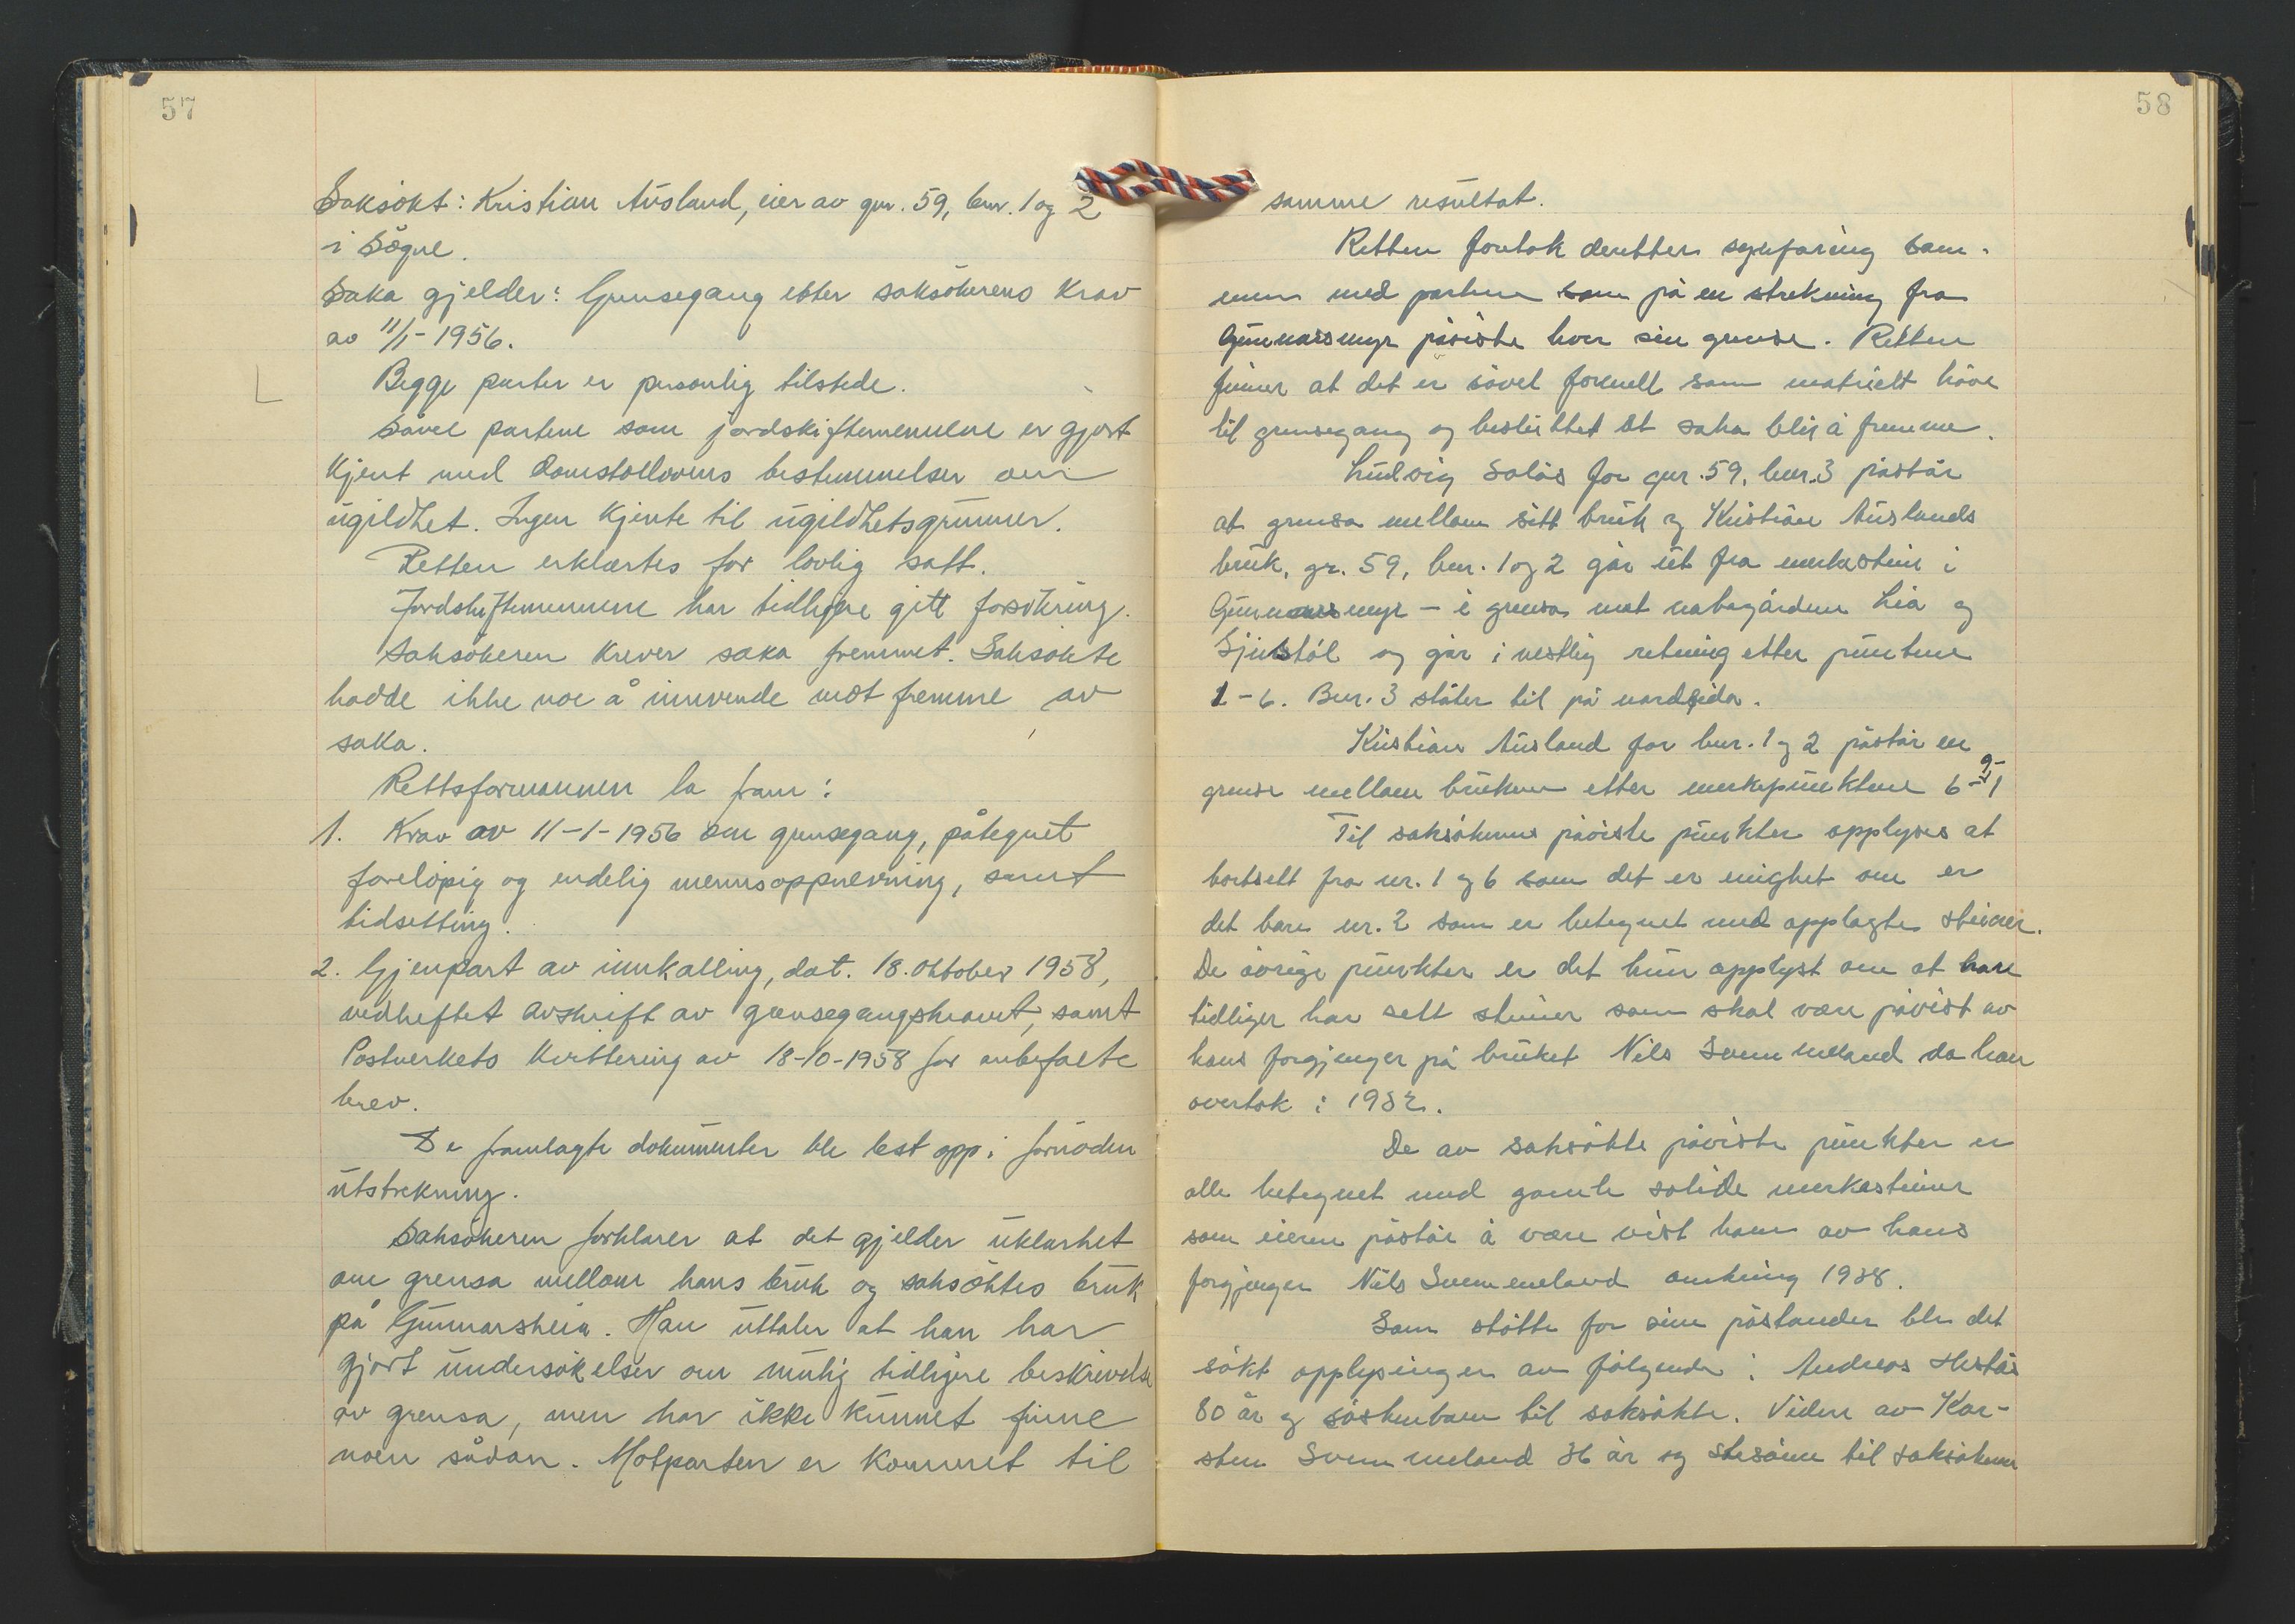 57
Saksökt: Kristian Ausland, eier av gnr. 59, bnr. 1 og 2
i Sögne.
Saka gjelder: Grensegang etter saksökerens krav
av 11/1-1956.
Begge parter er personlig tilstede.
Såvel partene som jordskiftemennene er gjort
kjent med domstollovens bestemmelser om
ugildhet. Ingen kjente til ugildhetsgrunner.
Retten erklærtes for lovlig satt.
Jordskiftemennene har tidligere gitt forsikring.
Saksökeren krever saka fremmet. Saksökte
hadde ikke noe å innvende mot fremme av
saka.
Rettsformannen la fram:
1. Krav av 11-1-1956 om grensegang, påtegnet
forelöpig og endelig mennsoppnevning, samt
tidsetting.
2. Gjenpart av innkalling, dat. 18. oktober 1958,
vedheftet avskrift av grensegangskravet, samt
Postverkets kvittering av 18-10-1958 for anbefalte
brev.
De framlagte dokumenter ble lest opp i fornöden
utstrekning.
Saksökeren forklarer at det gjelder uklarhet
om grensa mellom hans bruk og saksöktes bruk
på Gunnarsheia. Han uttaler at han har
gjort undersökelser om mulig tidligere beskrivelse
av grensa, men har ikke kunnet finne
noen sådan. Motparten er kommet til
58
samme resultat.
Retten foretok deretter synfaring sam-
men med partene som på en strekning fra
Gunnarsmyr påviste hver sin grense. Retten
finner at det er såvel formelt som materielt höve
til grensegang og besluttet at saka blir å fremme.
Ludvig Salås for gnr. 59, bnr. 3 påstår
at grensa mellom sitt bruk og Kristian Auslands
bruk, gr. 59, bnr. 1 og 2 går ut fra merkestein i
Gunnarsmyr - i grensa mot nabogårdene Lia og
og går i vestlig retning etter punktene
1-6. Bnr. 3 stöter til på nordsida.
Kristian Ausland for bnr. 1 og 2 påstår en
grense mellom brukene etter merkepunktene 6-9-1
Til saksökerens påviste punkter opplyses at
bortsett fra nr. 1 og 6 som det er enighet om er
det bare nr. 2 som er betegnet med opplagte steiner.
De övrige punkter er det kun opplyst om at han
tidligere har sett steiner som skal være påvist av
hans forgjenger på bruket Nils Svennmeland da han
overtok i 1932.
De av saksökte påviste punkter er
alle betegnet med gamle solide merkesteiner
som eieren påstår å være vist ham av hans
forgjenger Nils Svennmeland omkring 1938.
Som stötte for sine påstander ble det
sökt opplysinger av fölgende: Andreas Hestås
80 år og söskenbarn til saksökte. Videre av Kar-
sten Svennmeland 36 år og stesönn til saksökeren